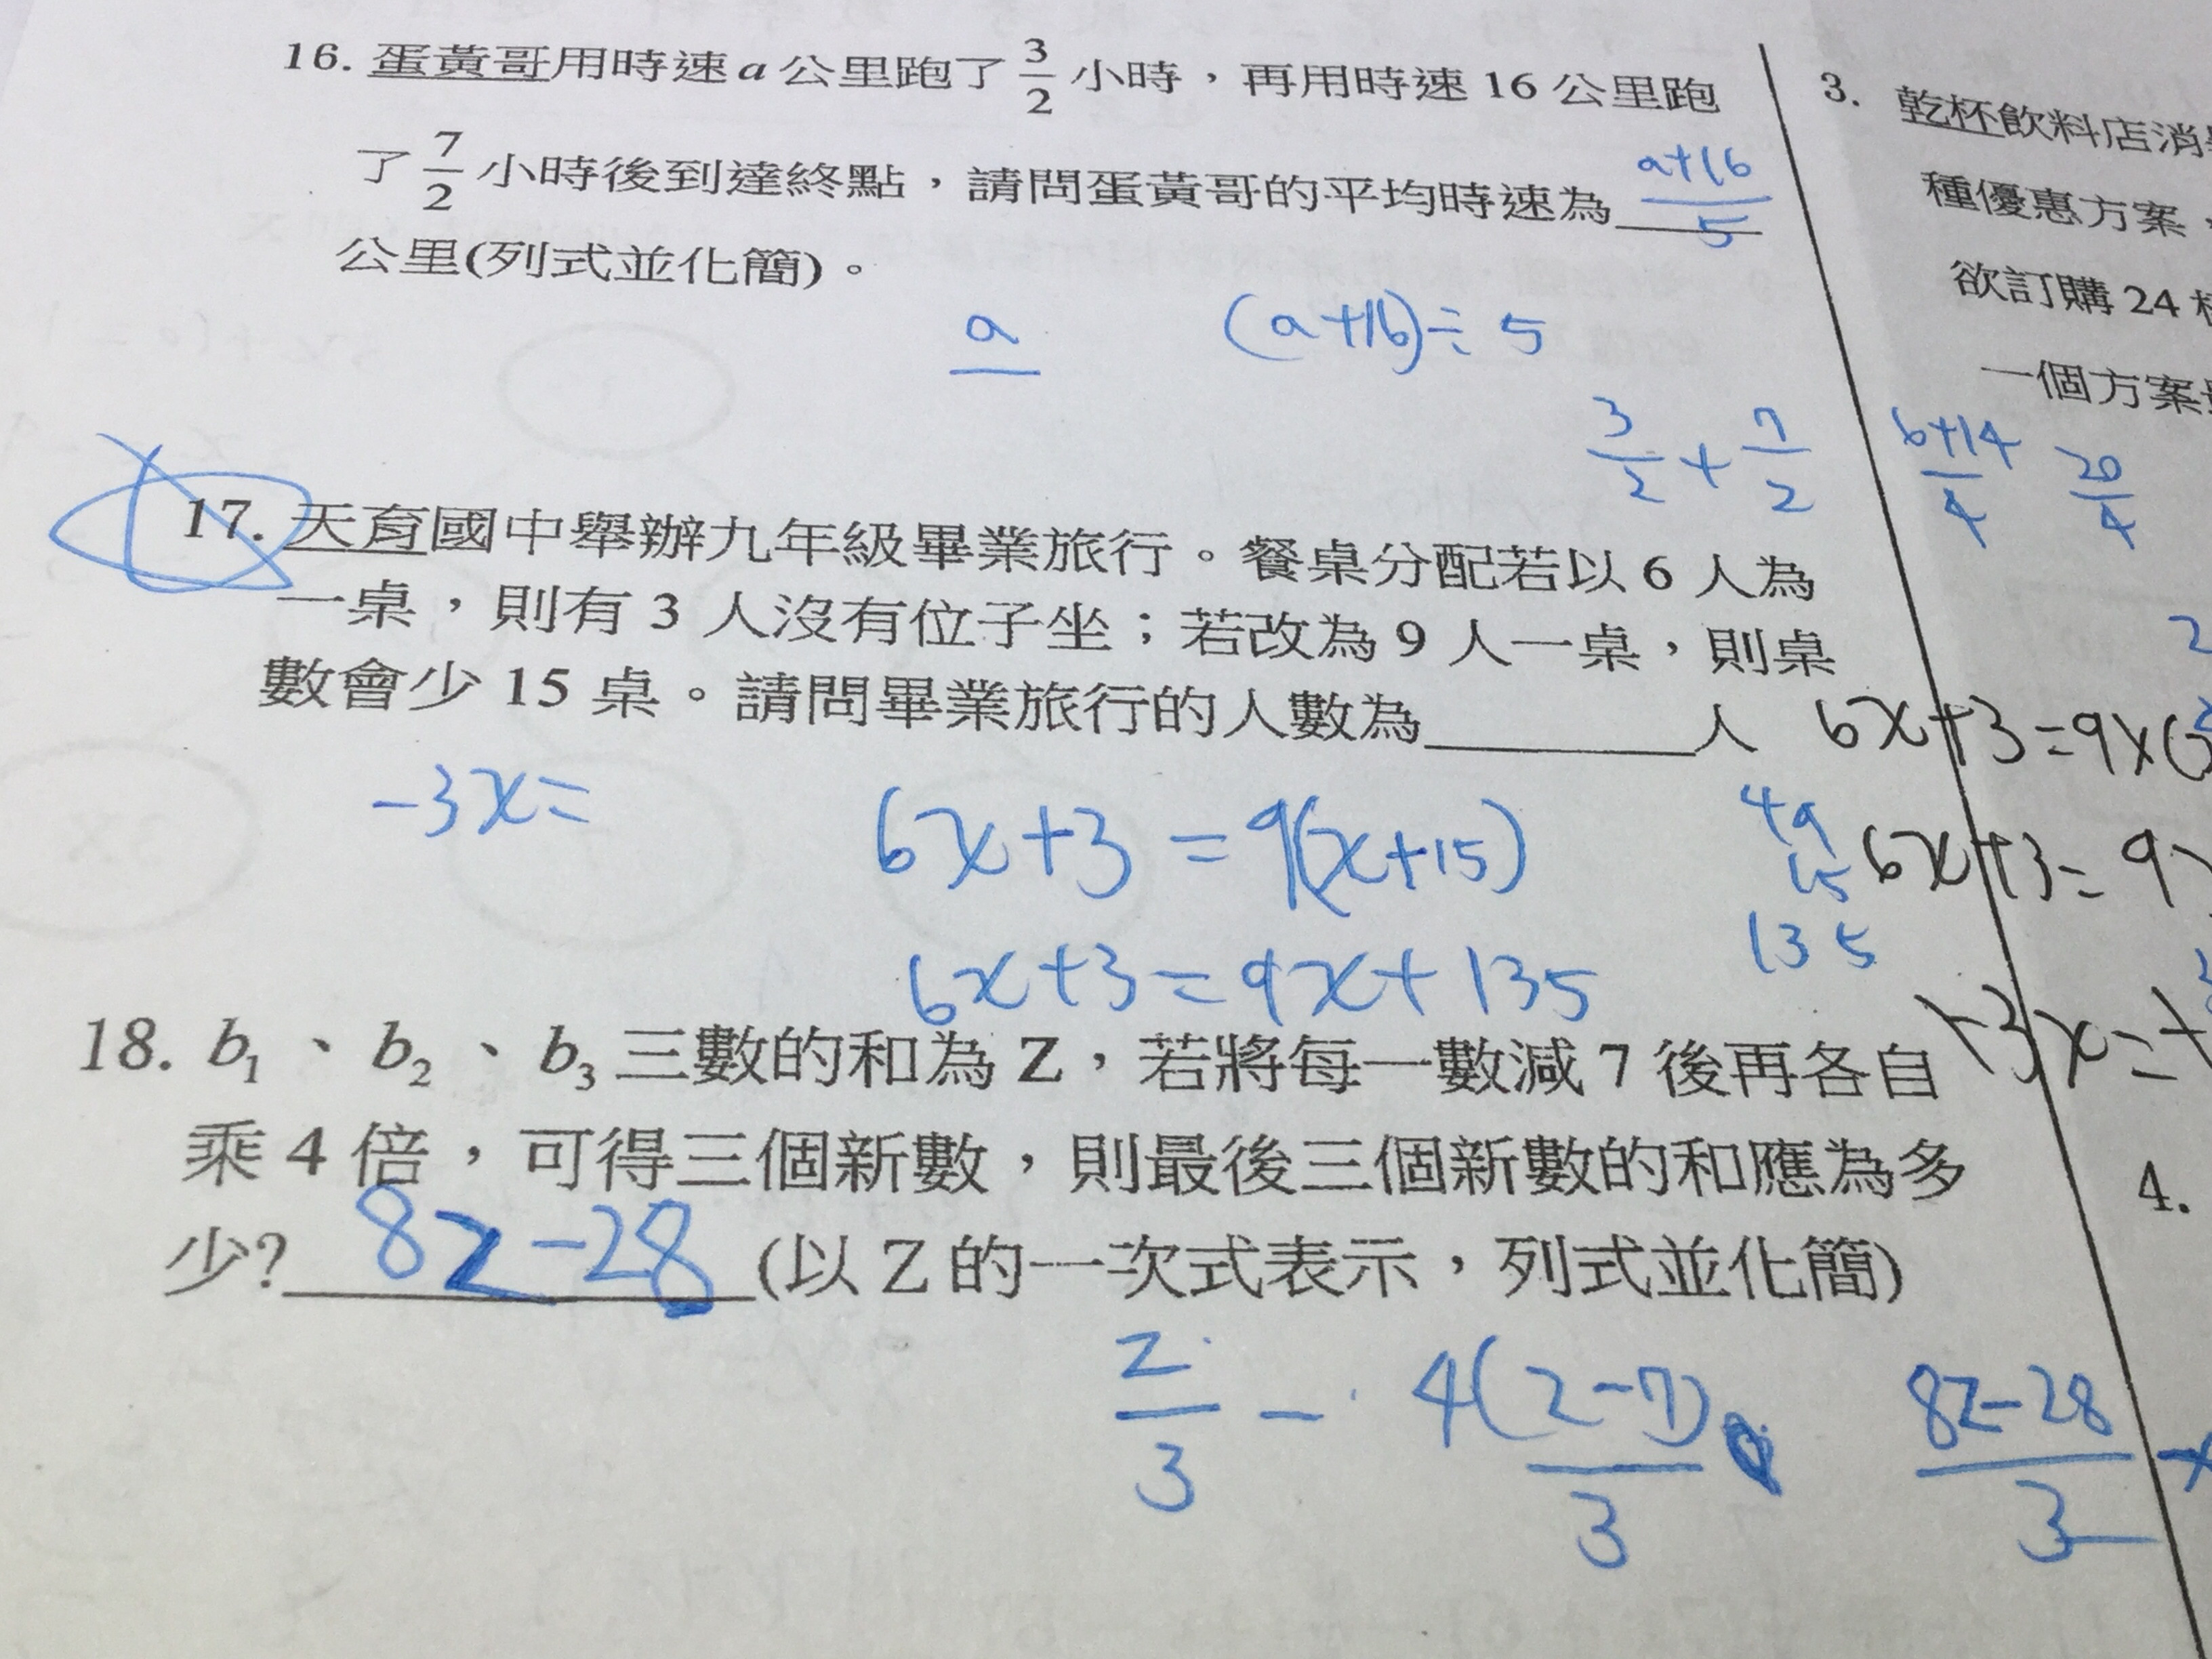 16. 蛋黃哥用時速 a 公里跑了 3/2 小時，再用時速 16 公里跑
了 7/2 小時後到達終點，請問蛋黃哥的平均時速為 (a+16)/5
公里(列式並化簡)。
a (a+16)÷5
3/2 + 7/2 6+14/4 20/4
17. 天育國中舉辦九年級畢業旅行。餐桌分配若以 6 人為
一桌，則有 3 人沒有位子坐；若改為 9 人一桌，則桌
數會少 15 桌。請問畢業旅行的人數為________人
6x+3=9x(
-3x=
6x+3=9(x+15)
15
135
6x+3=9
6x+3=9x+135
-3x=+
18. b₁、b₂、b₃ 三數的和為 Z，若將每一數減 7 後再各自
乘 4 倍，可得三個新數，則最後三個新數的和應為多
少? 8Z-28 (以 Z 的一次式表示，列式並化簡)
Z/3 - 4(Z-7)/3 8Z-28/3
3. 乾杯飲料店消
種優惠方案，
欲訂購 24 杯
一個方案
4.